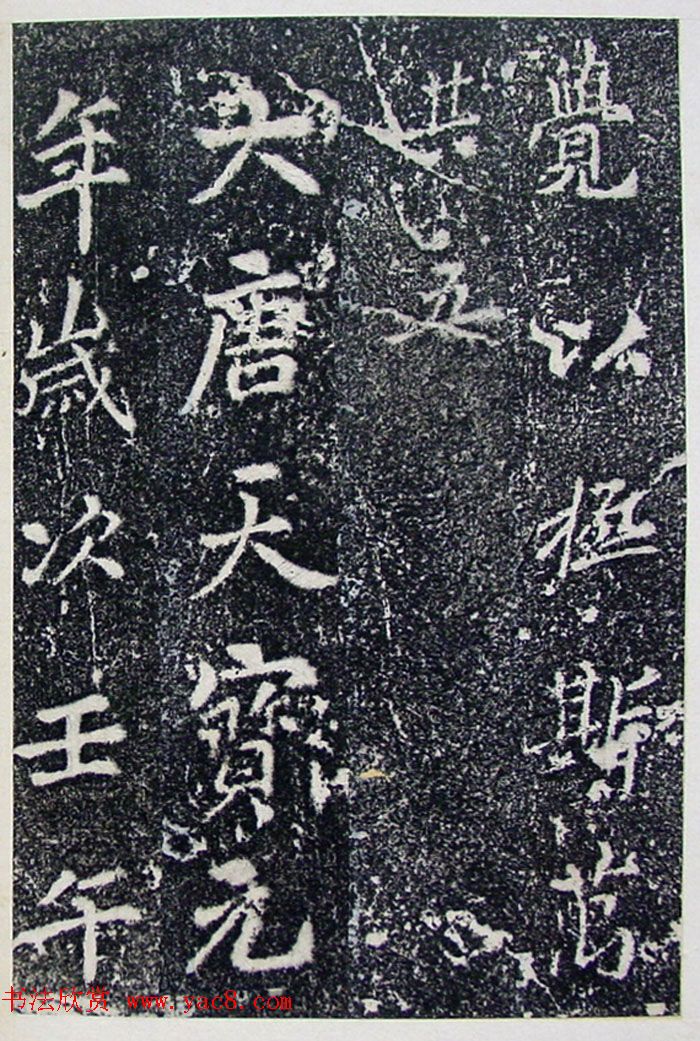 覺以拯斯
其五
大唐天寶元
年歲次壬午
书法欣赏 www.yac8.com